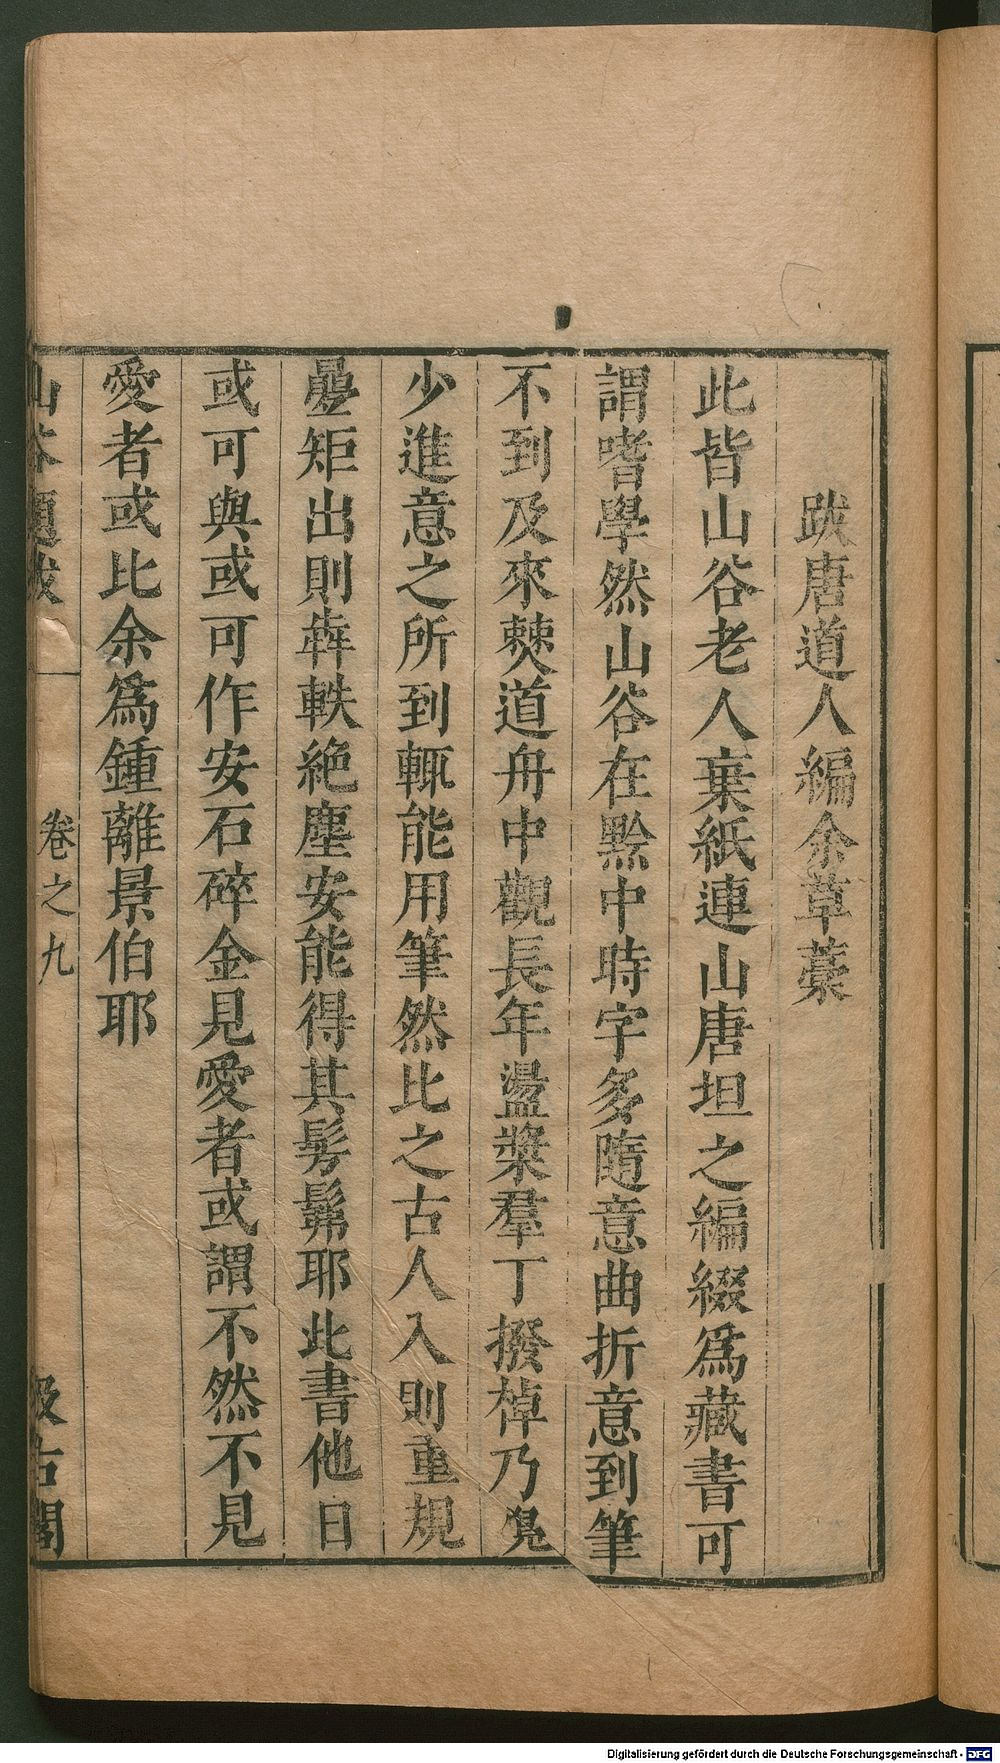 跋唐道人編余草藁
此皆山谷老人棄紙連山唐坦之編綴爲藏書可
謂嗜學然山谷在黔中時字多隨意曲折意到筆
不到及來僰道舟中觀長年盪槳羣丁撥棹乃覺
少進意之所到輒能用筆然比之古人入則重規
疊矩出則奔軼絕塵安能得其髣髴耶此書他日
或可與或可作安石碎金見愛者或謂不然不見
愛者或比余爲鍾離景伯耶
山谷題跋 卷之九 汲古閣
Digitalisierung gefördert durch die Deutsche Forschungsgemeinschaft - DFG